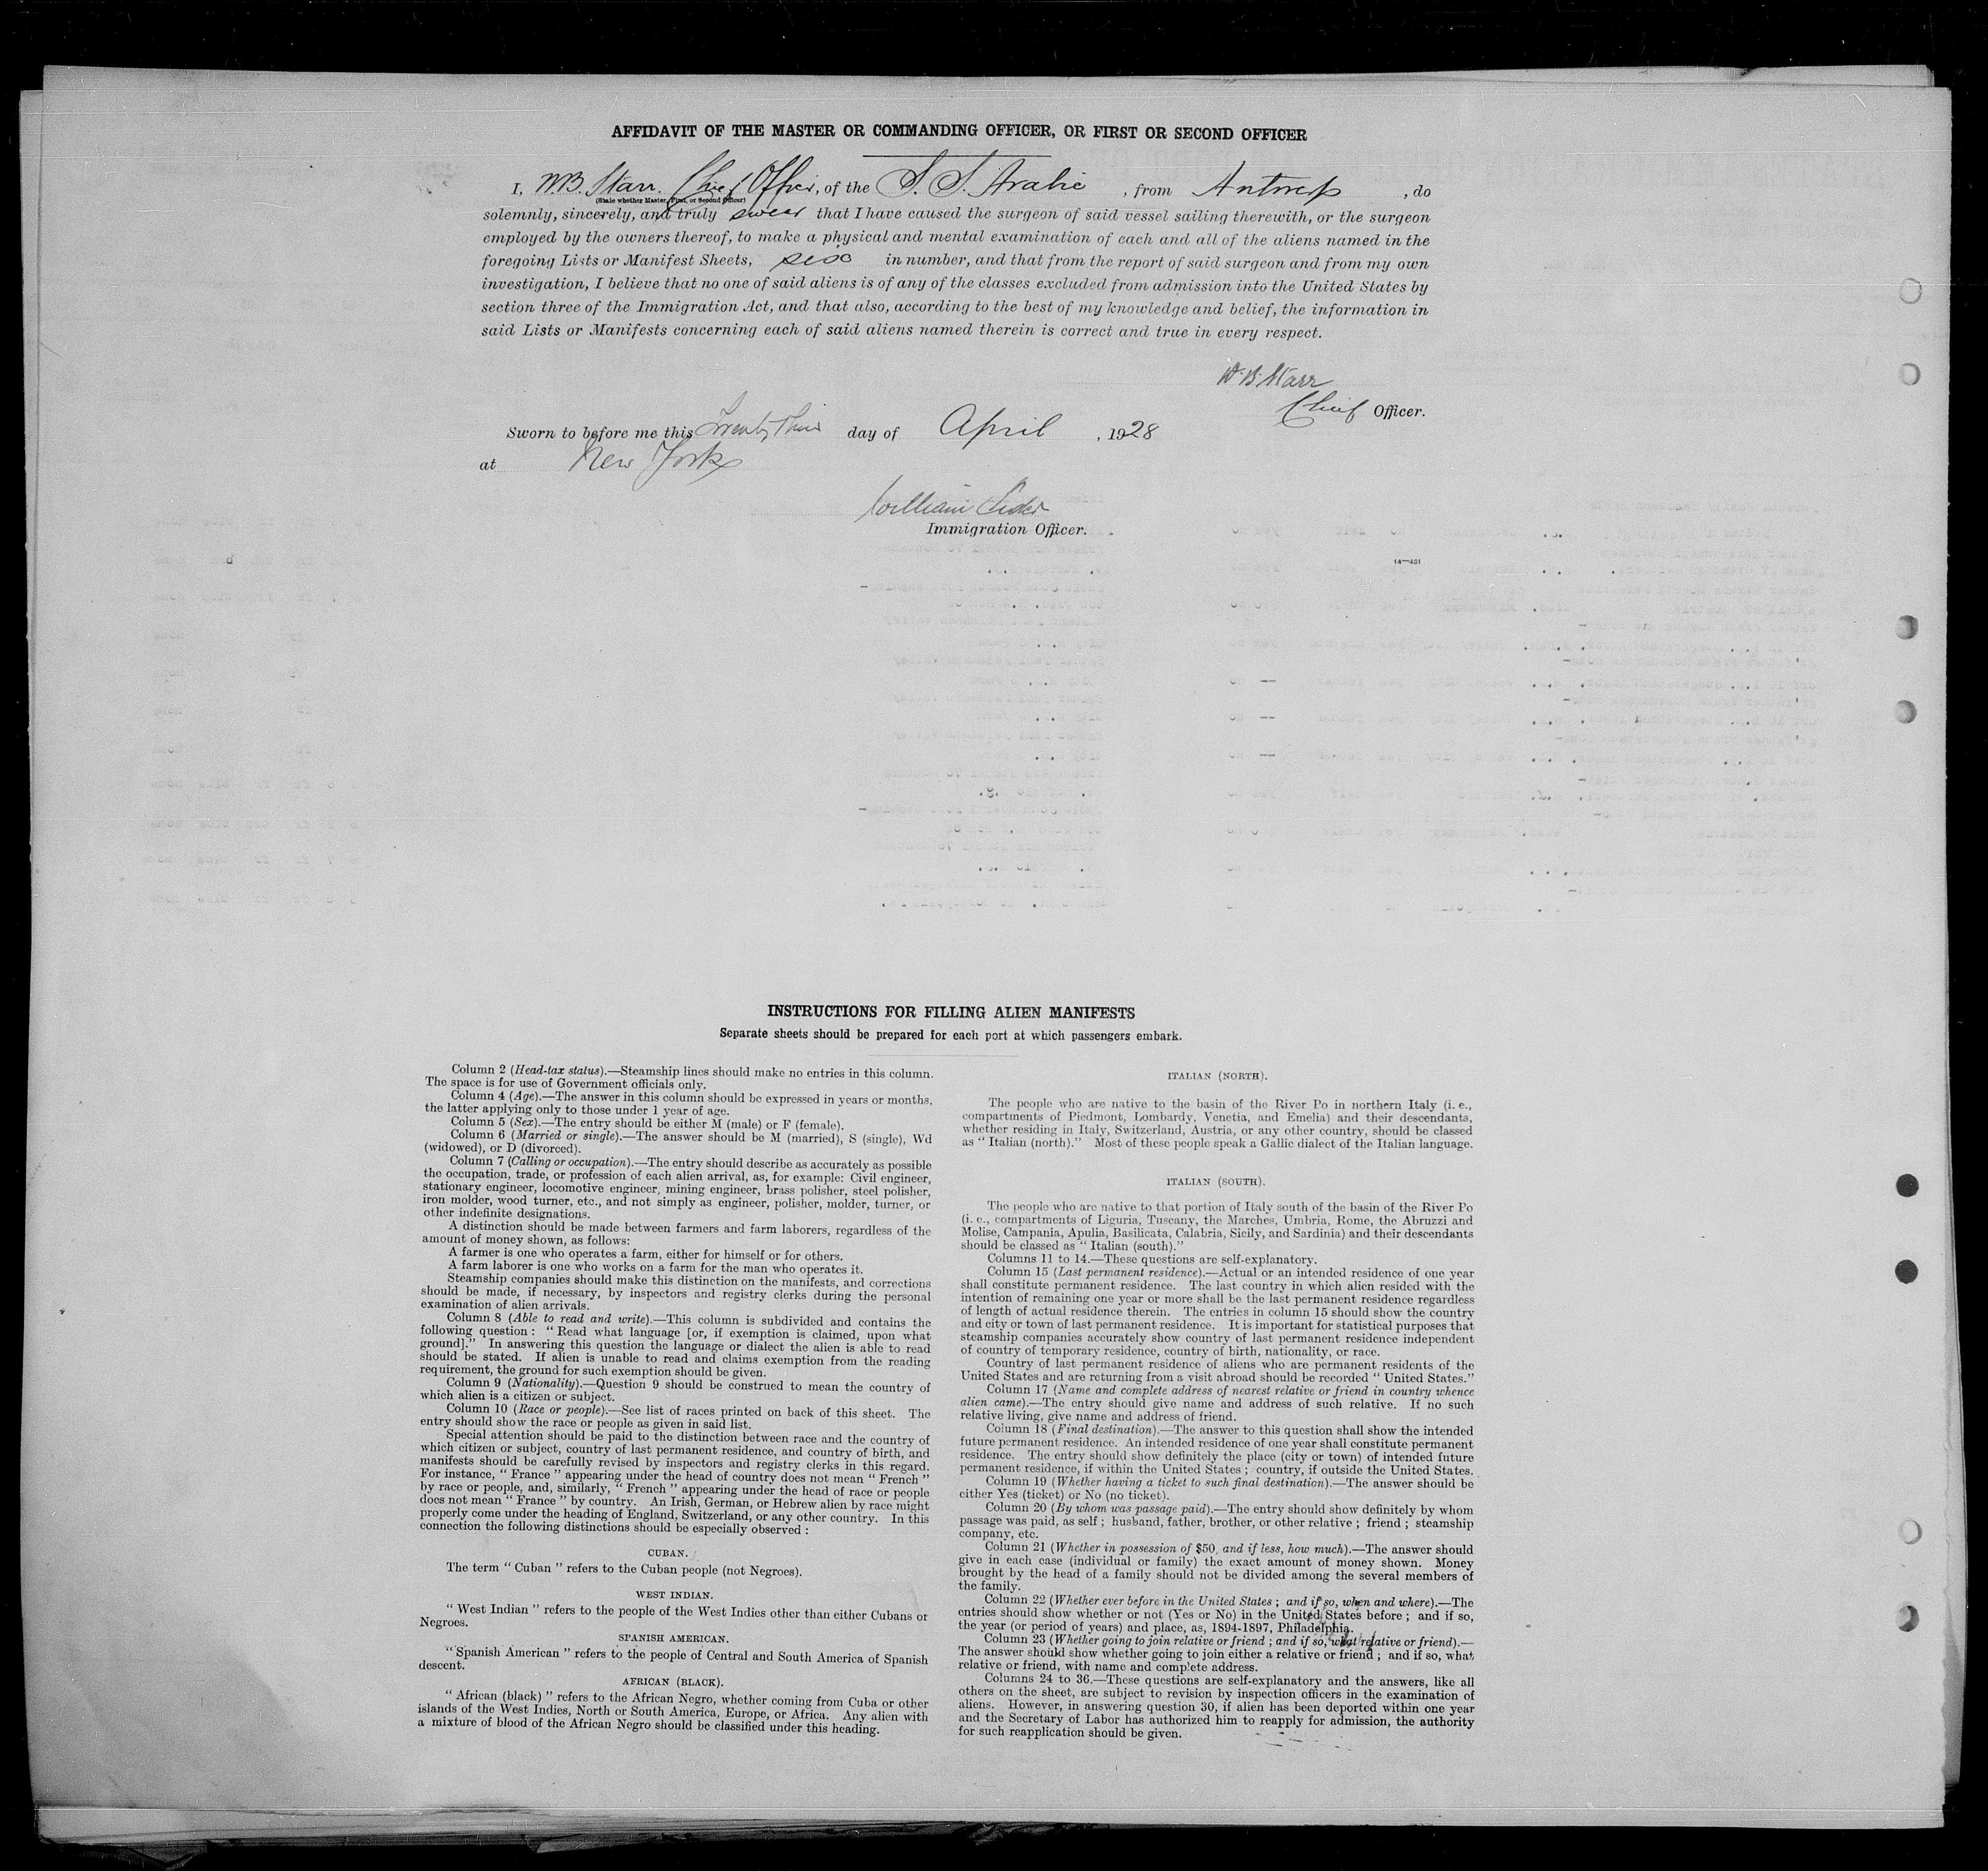 AFFIDAVIT OF THE MASTER OR COMMANDING OFFICER, OR FIRST OR SECOND OFFICER
I, W.B. Starr. Chief Officer, of the S. S. Arabic , from Antwerp , do
(State whether Master, First, or Second Officer)
solemnly, sincerely, and truly swear that I have caused the surgeon of said vessel sailing therewith, or the surgeon
employed by the owners thereof, to make a physical and mental examination of each and all of the aliens named in the
foregoing Lists or Manifest Sheets, six in number, and that from the report of said surgeon and from my own
investigation, I believe that no one of said aliens is of any of the classes excluded from admission into the United States by
section three of the Immigration Act, and that also, according to the best of my knowledge and belief, the information in
said Lists or Manifests concerning each of said aliens named therein is correct and true in every respect.
W. B. Starr
Chief Officer.
Sworn to before me this Twenty Third day of April , 1928
at New York
William
Immigration Officer.
14—431
INSTRUCTIONS FOR FILLING ALIEN MANIFESTS
Separate sheets should be prepared for each port at which passengers embark.
Column 2 (Head-tax status).—Steamship lines should make no entries in this column.
The space is for use of Government officials only.
Column 4 (Age).—The answer in this column should be expressed in years or months,
the latter applying only to those under 1 year of age.
Column 5 (Sex).—The entry should be either M (male) or F (female).
Column 6 (Married or single).—The answer should be M (married), S (single), Wd
(widowed), or D (divorced).
Column 7 (Calling or occupation).—The entry should describe as accurately as possible
the occupation, trade, or profession of each alien arrival, as, for example: Civil engineer,
stationary engineer, locomotive engineer, mining engineer, brass polisher, steel polisher,
iron molder, wood turner, etc., and not simply as engineer, polisher, molder, turner, or
other indefinite designations.
A distinction should be made between farmers and farm laborers, regardless of the
amount of money shown, as follows:
A farmer is one who operates a farm, either for himself or for others.
A farm laborer is one who works on a farm for the man who operates it.
Steamship companies should make this distinction on the manifests, and corrections
should be made, if necessary, by inspectors and registry clerks during the personal
examination of alien arrivals.
Column 8 (Able to read and write).—This column is subdivided and contains the
following question : “ Read what language [or, if exemption is claimed, upon what
ground].” In answering this question the language or dialect the alien is able to read
should be stated. If alien is unable to read and claims exemption from the reading
requirement, the ground for such exemption should be given.
Column 9 (Nationality).—Question 9 should be construed to mean the country of
which alien is a citizen or subject.
Column 10 (Race or people).—See list of races printed on back of this sheet. The
entry should show the race or people as given in said list.
Special attention should be paid to the distinction between race and the country of
which citizen or subject, country of last permanent residence, and country of birth, and
manifests should be carefully revised by inspectors and registry clerks in this regard.
For instance, “ France ” appearing under the head of country does not mean “ French ”
by race or people, and, similarly, “ French ” appearing under the head of race or people
does not mean “ France ” by country. An Irish, German, or Hebrew alien by race might
properly come under the heading of England, Switzerland, or any other country. In this
connection the following distinctions should be especially observed :
CUBAN.
The term “ Cuban ” refers to the Cuban people (not Negroes).
WEST INDIAN.
“ West Indian ” refers to the people of the West Indies other than either Cubans or
Negroes.
SPANISH AMERICAN.
“ Spanish American ” refers to the people of Central and South America of Spanish
descent.
AFRICAN (BLACK).
“ African (black) ” refers to the African Negro, whether coming from Cuba or other
islands of the West Indies, North or South America, Europe, or Africa. Any alien with
a mixture of blood of the African Negro should be classified under this heading.
ITALIAN (NORTH).
The people who are native to the basin of the River Po in northern Italy (i. e.,
compartments of Piedmont, Lombardy, Venetia, and Emelia) and their descendants,
whether residing in Italy, Switzerland, Austria, or any other country, should be classed
as “ Italian (north).” Most of these people speak a Gallic dialect of the Italian language.
ITALIAN (SOUTH).
The people who are native to that portion of Italy south of the basin of the River Po
(i. e., compartments of Liguria, Tuscany, the Marches, Umbria, Rome, the Abruzzi and
Molise, Campania, Apulia, Basilicata, Calabria, Sicily, and Sardinia) and their descendants
should be classed as “ Italian (south).”
Columns 11 to 14.—These questions are self-explanatory.
Column 15 (Last permanent residence).—Actual or an intended residence of one year
shall constitute permanent residence. The last country in which alien resided with the
intention of remaining one year or more shall be the last permanent residence regardless
of length of actual residence therein. The entries in column 15 should show the country
and city or town of last permanent residence. It is important for statistical purposes that
steamship companies accurately show country of last permanent residence independent
of country of temporary residence, country of birth, nationality, or race.
Country of last permanent residence of aliens who are permanent residents of the
United States and are returning from a visit abroad should be recorded “ United States.”
Column 17 (Name and complete address of nearest relative or friend in country whence
alien came).—The entry should give name and address of such relative. If no such
relative living, give name and address of friend.
Column 18 (Final destination).—The answer to this question shall show the intended
future permanent residence. An intended residence of one year shall constitute permanent
residence. The entry should show definitely the place (city or town) of intended future
permanent residence, if within the United States ; country, if outside the United States.
Column 19 (Whether having a ticket to such final destination).—The answer should be
either Yes (ticket) or No (no ticket).
Column 20 (By whom was passage paid).—The entry should show definitely by whom
passage was paid, as self ; husband, father, brother, or other relative ; friend ; steamship
company, etc.
Column 21 (Whether in possession of $50, and if less, how much).—The answer should
give in each case (individual or family) the exact amount of money shown. Money
brought by the head of a family should not be divided among the several members of
the family.
Column 22 (Whether ever before in the United States ; and if so, when and where).—The
entries should show whether or not (Yes or No) in the United States before ; and if so,
the year (or period of years) and place, as, 1894-1897, Philadelphia.
Column 23 (Whether going to join relative or friend ; and if so, what relative or friend).—
The answer should show whether going to join either a relative or friend ; and if so, what
relative or friend, with name and complete address.
Columns 24 to 36.—These questions are self-explanatory and the answers, like all
others on the sheet, are subject to revision by inspection officers in the examination of
aliens. However, in answering question 30, if alien has been deported within one year
and the Secretary of Labor has authorized him to reapply for admission, the authority
for such reapplication should be given.